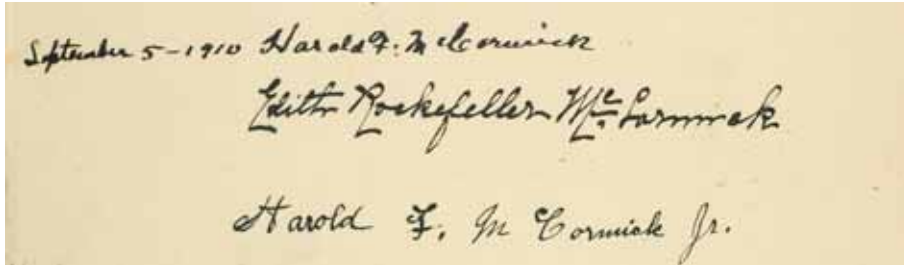 September 5-1910 Harold F. McCormick
Edith Rockefeller McCormick
Harold F. McCormick Jr.